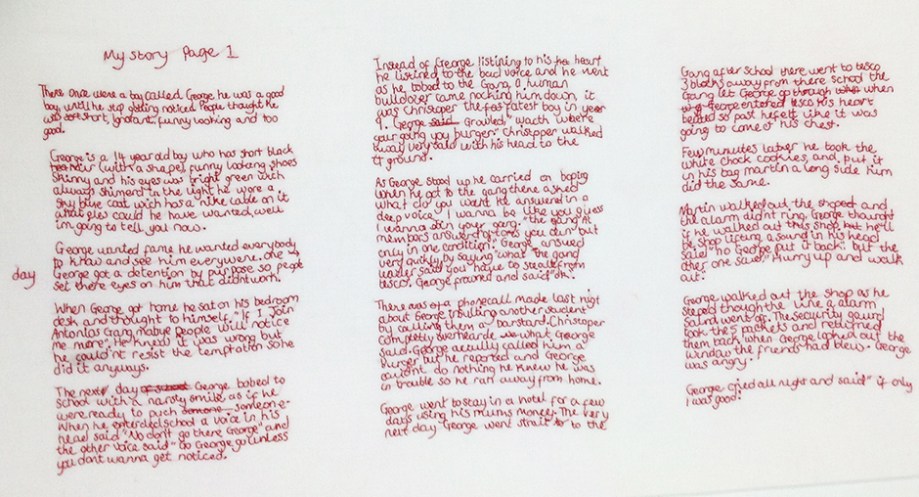 My story Page 1
There once were a boy called George, he was a good
boy until he stop getting noticed. People thought he
was short, ignorant, funny looking and too
good.
George is a 14 year old boy who has short black
hair (with a shape), funny looking shoes
skinny and his eyes was bright green wich
always shimerd in the light he wore a
sky blue coat wich has a nike lable on it
what eles could he have wanted, well
im going to tell you now.
George wanted fame he wanted everybody
to know and see him everywere. One day
George got a detention by purpose so people
set there eyes on him that didnt work.
When George got home he sat on his bedroom
desk and thought to himself, "If I Join
Antonias Gang matye people will notice
me more". He knew it was wrong but
he couldnt resist the temptation so he
did it anyways.
The next day George bobed to
school with a narsty smile as if he
were ready to puch someone.
When he enterded school a voice in his
head said "No don't go there George" and
the other voice said "Go George, go unless
you dont wanna get noticed.
Instead of George listining to his heart
he listined to the bad voice and he went
as he bobed to the Gang. A human
bulldozer came nocking him down, it
was Christoper the fastest boy in year
9. George Growled, "watch where
your going you burger" Christopper walked
away very sad with his head to the
ground.
As George stood up he carried on boping
when he got to the gang there asked
what do you want. He answered in a
deep voice "I wanna be like you guess
I wanna join your gang". "the gang
members answerd "of tons you can but
only in one condition". George answed
very quickly by saying "what" the gang
leader said you have to steal from
tesco. George frowned and said "ok".
There was of a phonecall made last nigt
about George insulting another student
by calling them a barstard. Christoper
completly overheard what George
said. George acually called him a
burger but he reported and George
couldnt do nothing he knew he was
in trouble so he ran away from home.
George went to stay in a hotel for a few
days using his mums money. The very
next day George went strait to the
Gang after school there went to tesco
3 bloths away from there school the
Gang let George go through when
George entered tesco his heart
beated so fast he felt like it was
going to come of his chest.
Few munutes later he took the
white chock cookies, and put it
in his bag martin a long side him
did the same.
Martin walked out the shop and
the alarm didnt ring. George thought
if he walked out this shop he'll
be shop lifting a sound in his head
said "no George put it back". But the
other one said "Hurry up and walk
out.
George walked out the shop as he
steped though the line a alarm
saind went of. The security gaurd
took the 5 packets and returned
them back, when George looked out the
window the friends had blew. George
was angry.
George cried all night and said "if only
I was good.